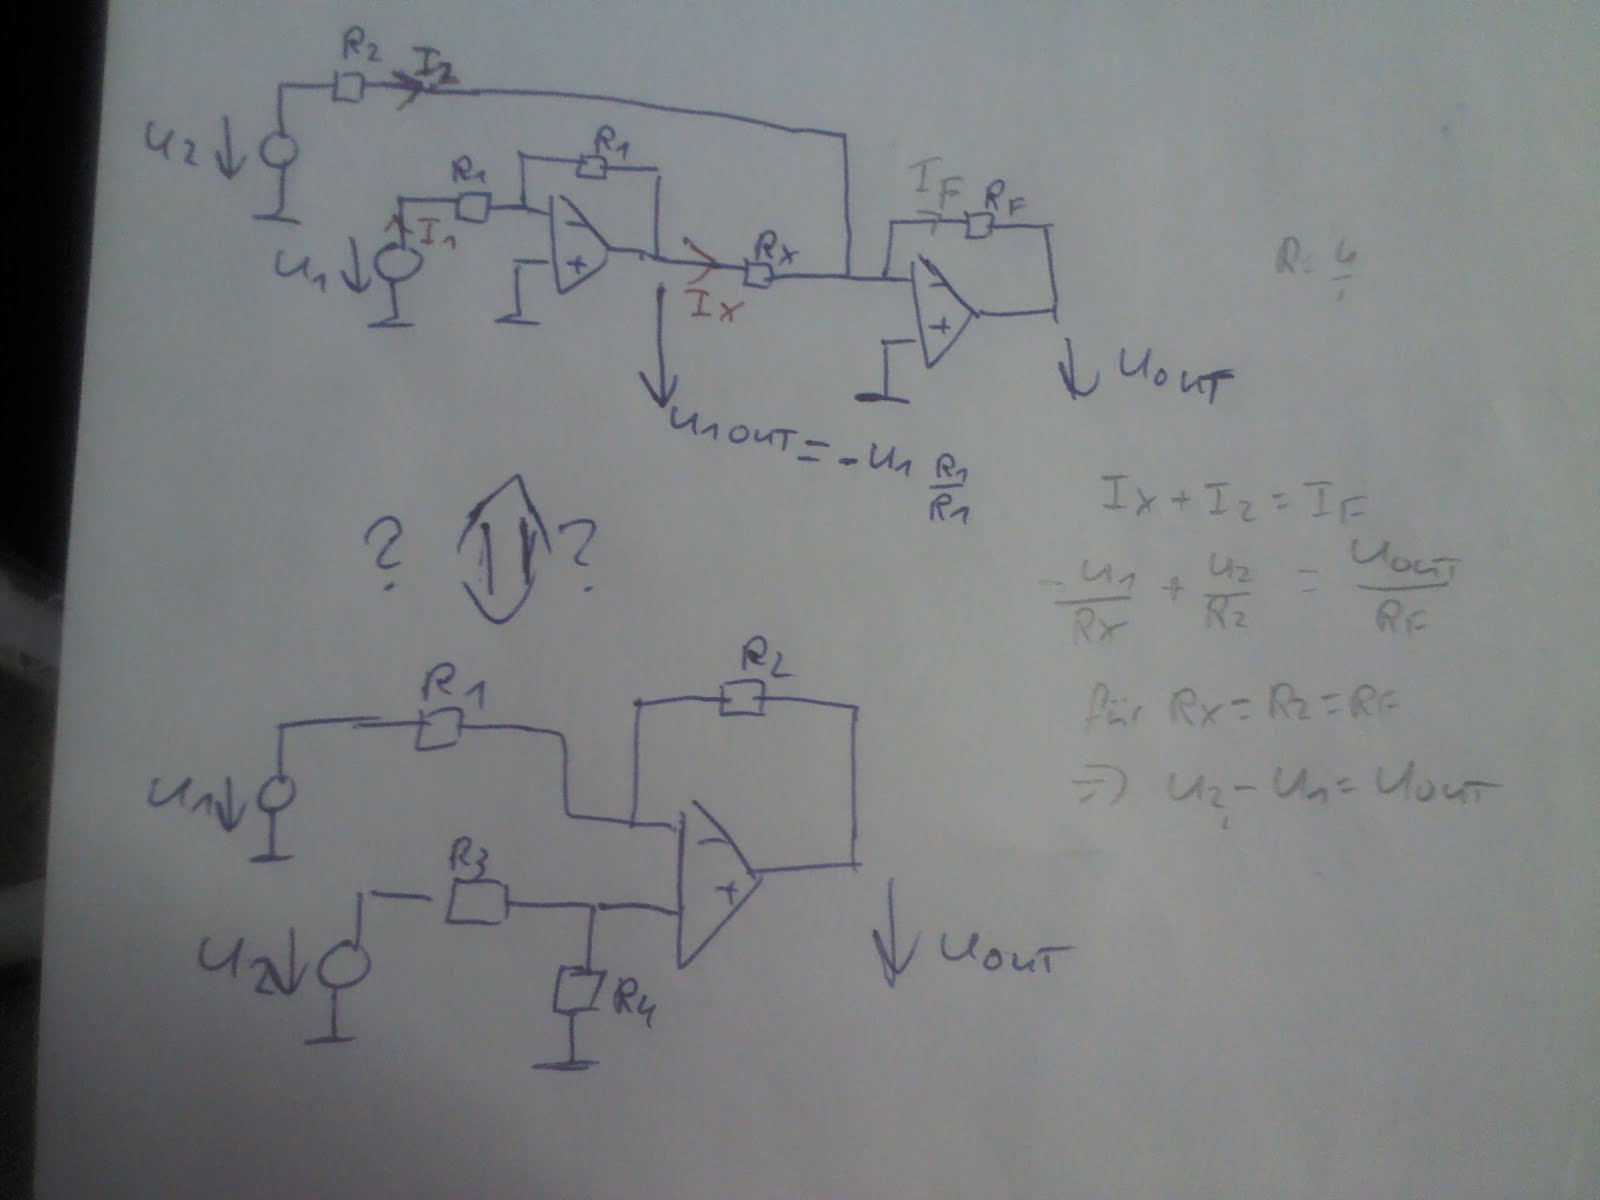 R2
I2
U2
R1
R1
I1
U1
-
+
Ix
Rx
IF
RF
-
+
UOUT
U1OUT = -U1 R1/R1
? ?
Ix + I2 = IF
-U1/Rx + U2/R2 = UOUT/RF
für Rx = R2 = RF
=> U2 - U1 = UOUT
R1
R2
U1
R3
U2
-
+
R4
UOUT